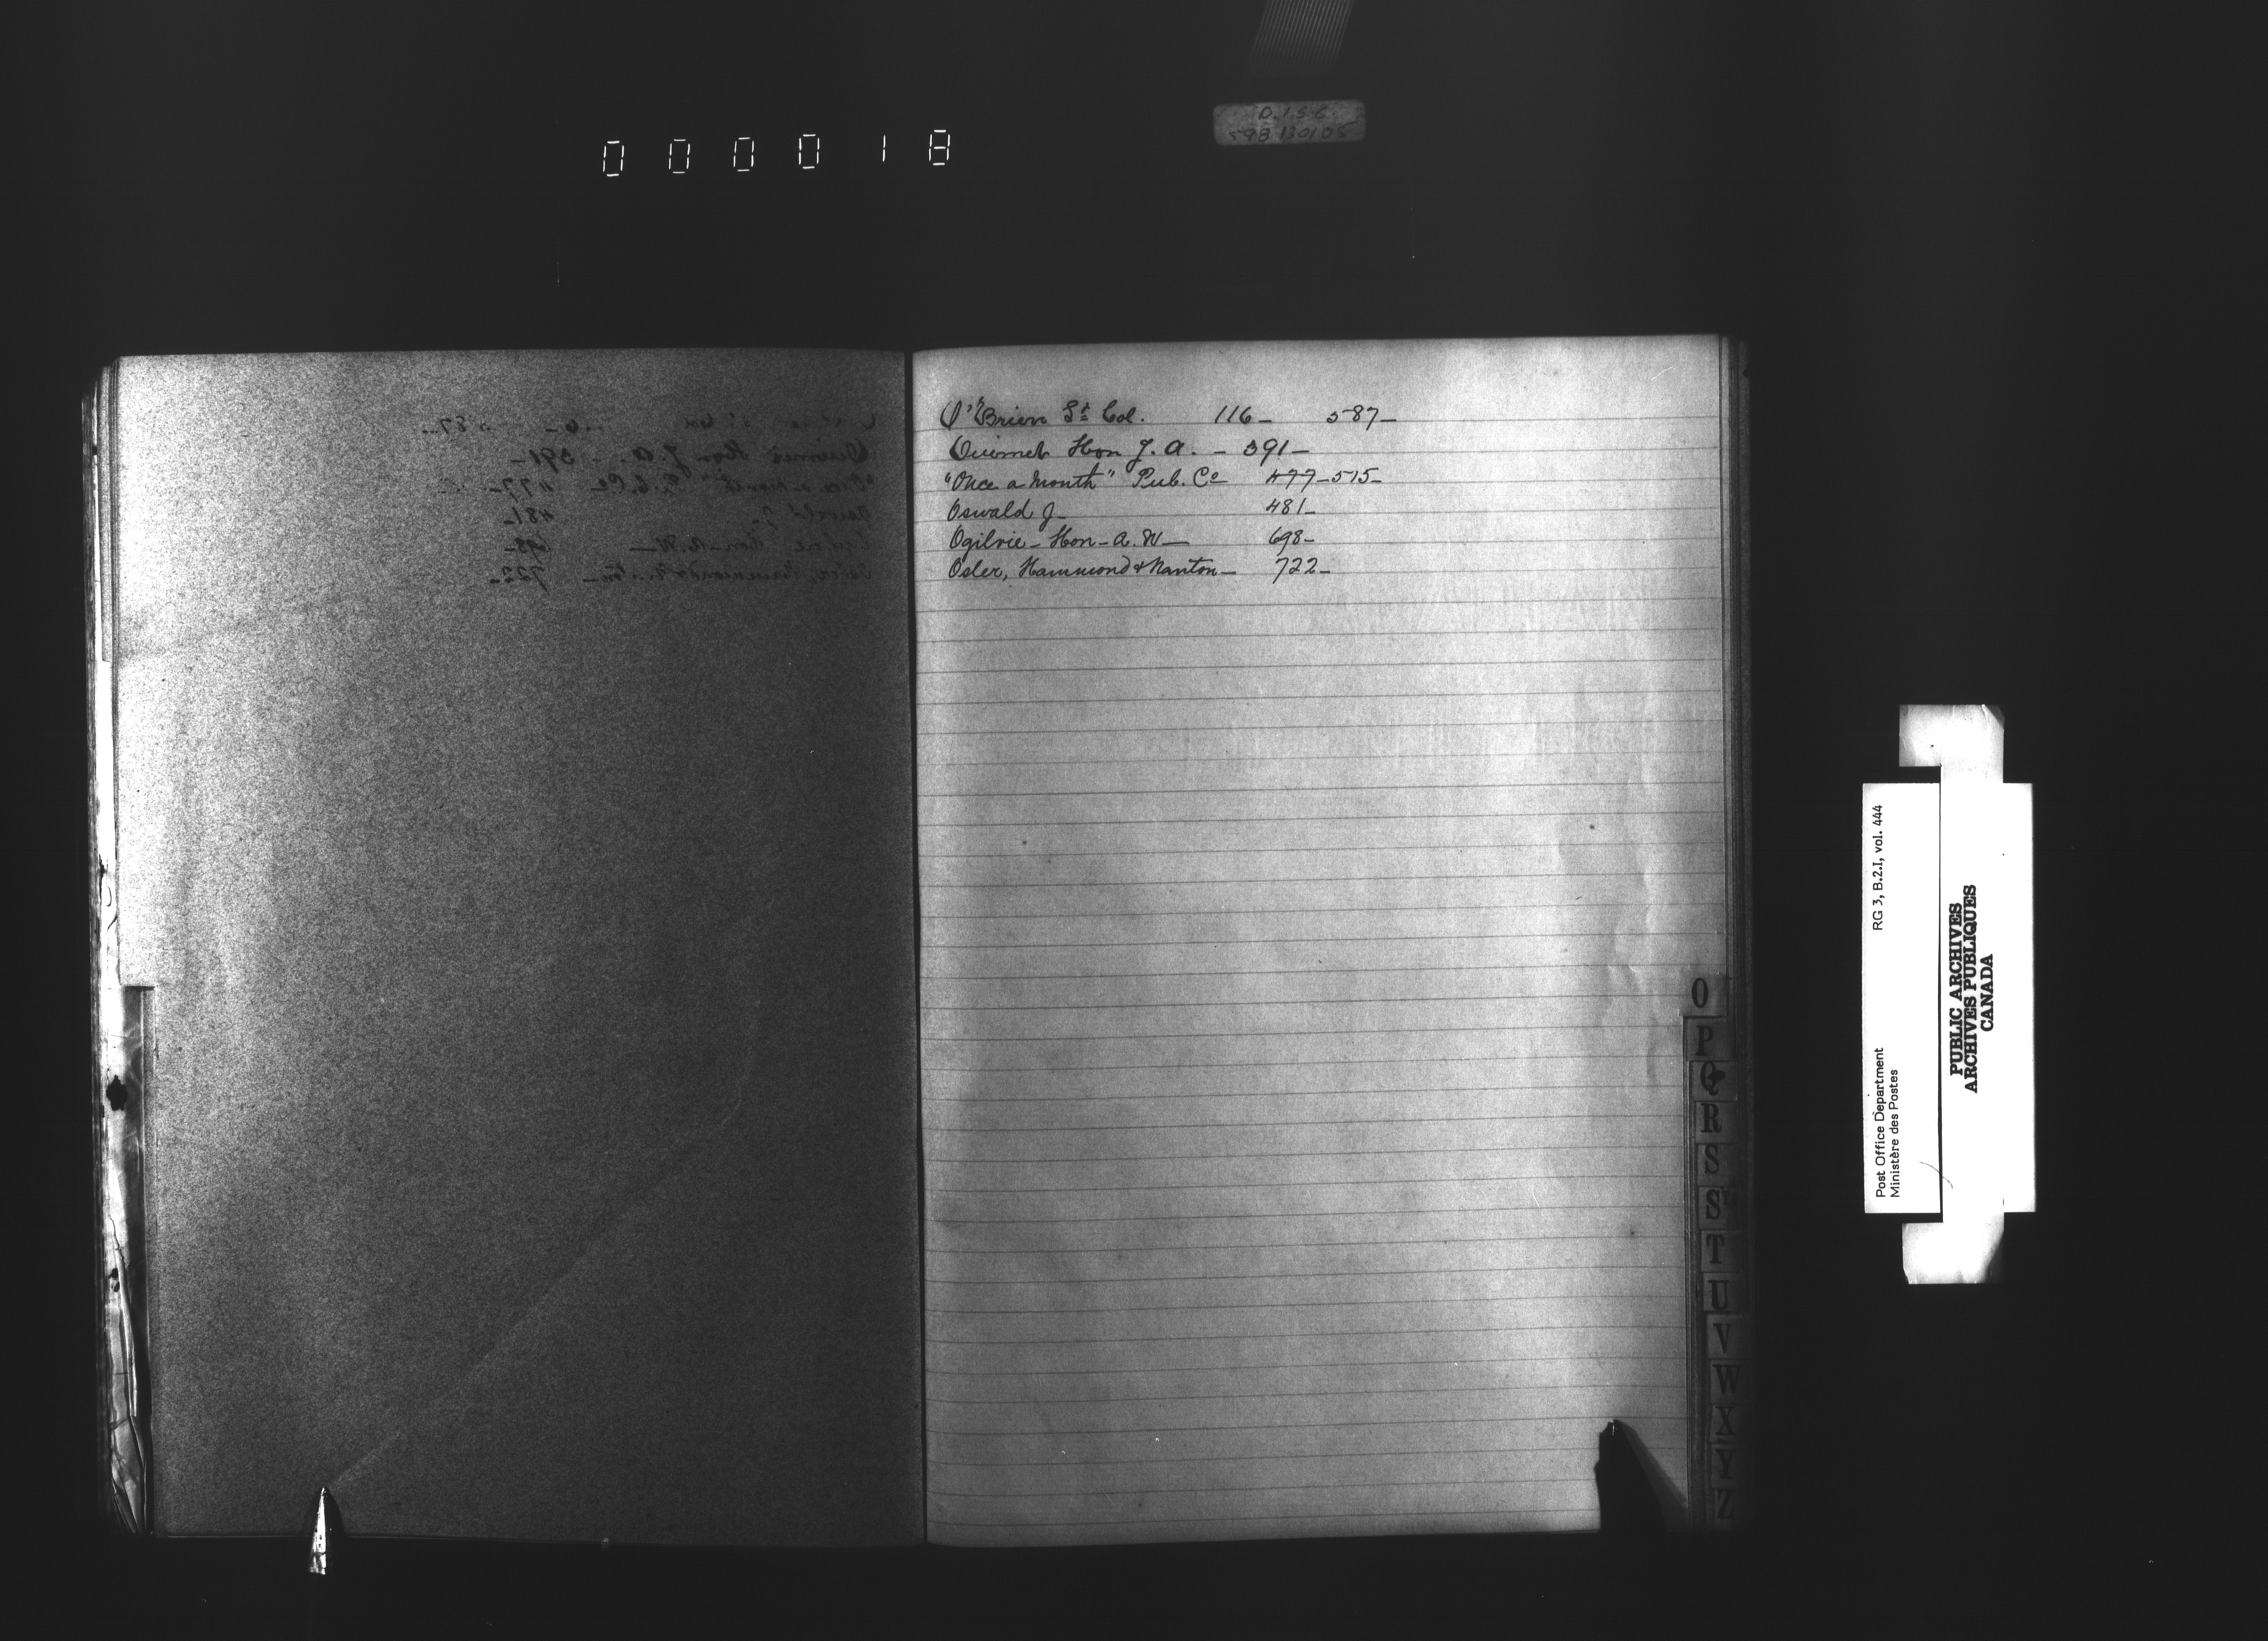 000018
D.I.S.C.
598 130105
O'Brien Lt Col. 116_ 587_
Ouimet Hon J. A. _ 391_
"Once a Month" Pub. Co 477_515_
Oswald J_ 481_
Ogilvie_Hon_A. W_ 698_
Osler, Hammond & Nanton_ 722_
O
P
Q
R
S
ST
T
U
V
W
X
Y
Z
Post Office Department
Ministère des Postes
RG 3, B.2.I, vol. 444
PUBLIC ARCHIVES
ARCHIVES PUBLIQUES
CANADA